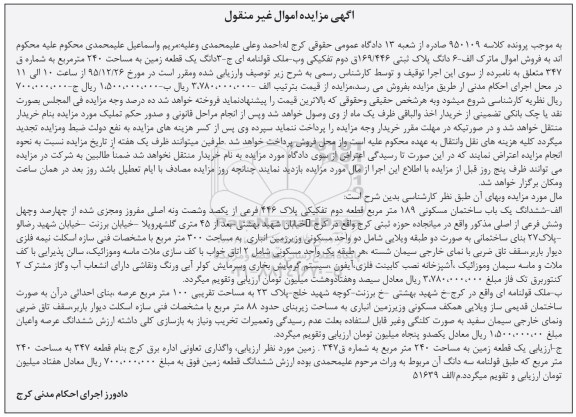 آگهی مزایده اموال غیر منقول
به موجب پرونده کلاسه ۹۵۰۱۰۹ صادره از شعبه ۱۳ دادگاه عمومی حقوقی کرج له:احمد وعلی علیمحمدی وعلیه:مریم واسماعیل علیمحمدی محکوم علیه محکوم
اند به فروش اموال ماترک الف-۶ دانگ پلاک ثبتی ۱۶۹/۴۴۶ق دوم تفکیکی وب-ملک قولنامه ای ج-۳دانگ یک قطعه زمین به مساحت ۲۴۰ مترمربع به شماره ق
۳۴۷ متعلق به نامبرده از سوی این اجرا توقیف و توسط کارشناس رسمی به شرح زیر توصیف وارزیابی شده ومقرر است در مورخ ۹۵/۱۲/۲۶ از ساعت ۱۰ الی ۱۱
در محل اجرای احکام مدنی از طریق مزایده بفروش می رسد،مزایده از قیمت بترتیب الف -۳،۷۸۰،۰۰۰،۰۰۰ ریال ب-۱،۵۰۰،۰۰۰،۰۰۰ ریال ج-۷۰۰،۰۰۰،۰۰۰
ریال نظریه کارشناسی شروع میشود وبه هرشخص حقیقی وحقوقی که بالاترین قیمت را پیشنهادنماید فروخته خواهد شد ده درصد وجه مزایده فی المجلس بصورت
نقد یا چک بانکی تضمینی از خریدار اخذ والباقی ظرف یک ماه از وی وصول خواهد شد وپس از انجام مراحل قانونی و صدور حکم تملیک مورد مزایده بنام خریدار
منتقل خواهد شد و در صورتیکه در مهلت مقرر خریدار وجه مزایده را پرداخت ننماید سپرده وی پس از کسر هزینه های مزایده به نفع دولت ضبط ومزایده تجدید
میگردد کلیه هزینه های نقل وانتقال به عهده محکوم علیه است واز محل فروش پرداخت خواهد شد .طرفین میتوانند ظرف یک هفته از تاریخ مزایده نسبت به نحوه
انجام مزایده اعتراض نمایند که در این صورت تا رسیدگی اعتراض از سوی دادگاه مورد مزایده به نام خریدار منتقل نخواهد شد ضمنا طالبین به شرکت در مزایده
می توانند ظرف پنج روز قبل از مزایده با اطلاع این اجرا از مال مورد مزایده بازدید نمایند چنانچه روز مزایده مصادف با ایام تعطیل باشد روز بعد در همان ساعت
ومکان برگزار خواهد شد.
مال مورد مزایده وبهای آن طبق نظر کارشناسی بدین شرح است:
الف-ششدانگ یک باب ساختمان مسکونی ۱۸۹ متر مربع قطعه دوم تفکیکی پلاک ۴۴۶ فرعی از یکصد وشصت ونه اصلی مفروز ومجزی شده از چهارصد وچهل
وشش فرعی از اصلی مذکور واقع در میانجاده حوزه ثبتی کرج واقع در کرج خیابان شهید بهشتی-بعد از ۴۵ متری گلشهرویلا -خیابان برزنت -خیابان شهید رضالو
-پلاک۲۷ بنای ساختمانی به صورت دو طبقه ویلایی شامل دو واحد مسکونی وزیرزمین انباری به مساحت ۳۰۰ متر مربع با مشخصات فنی سازه اسکلت نیمه فلزی
دیوار باربر،سقف تاق ضربی با نمای خارجی سیمان شسته ،هر طبقه یک واحد مسکونی شامل ۲ اتاق خواب با کف سازی ملات ماسه وموزائیک، سالن پذیرایی با کف
ملات و ماسه سیمان وموزائیک ،آشپزخانه نصب کابینت فلزی،آیفون ،سیستم گرمایش بخاری وسرمایش کولر آبی ورنگ ونقاشی دارای انشعاب آب وگاز مشترک ۲
کنتوربرق تک فاز مبلغ ۳،۷۸۰،۰۰۰،۰۰۰ ریال معادل سیصد وهفتادوهشت میلیون تومان ارزیابی وتقویم میگردد.
ب-ملک قولنامه ای واقع در کرج-خ شهید بهشتی -خ برزنت-کوچه شهید خلج-پلاک ۲۳ به مساحت تقریبی ۱۰۰ متر مربع عرصه ،بنای احداثی درآن به صورت
ساختمان قدیمی ساز ویلایی همکف مسکونی وزیرزمین انباری به مساحت زیربنای حدود ۸۸ متر مربع با مشخصات فنی سازه اسکلت دیوار باربر،سقف تاق ضربی
ونمای خارجی سیمان سفید به صورت کلنگی وغیر قابل استفاده بعلت عدم رسیدگی وتعمیرات تخریب ونیاز به بازسازی کلی داشته ارزش ششدانگ عرصه واعیان
مبلغ ۱،۵۰۰،۰۰۰،۰۰۰ ریال معادل یکصدو پنجاه میلیون تومان ارزیابی وتقویم میگردد.
ج-ارزیابی یک قطعه زمین به مساحت ۲۴۰ متر مربع به شماره ق۳۴۷ . زمین مورد نظر ارزیابی، واگذاری تعاونی اداره برق کرج بنام قطعه ۳۴۷ به مساحت ۲۴۰
متر مربع که طبق قولنامه سه دانگ آن مربوط به وراث مرحوم علیمحمدی بوده ارزش ششدانگ قطعه زمین فوق به مبلغ ۷۰۰،۰۰۰،۰۰۰ ریال معادل هفتاد میلیون
تومان ارزیابی و تقویم میگردد.م/الف ۵۱۶۳۹
دادورز اجرای احکام مدنی کرج